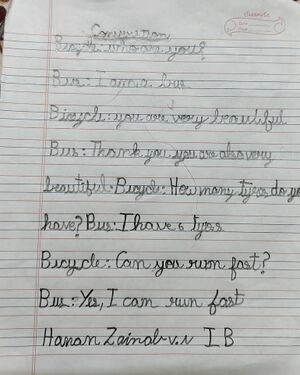 classmate
Date
Page
Conversation
Bicycle: who are you?
Bus: I am a bus
Bicycle: you are very beautiful
Bus: Thank you you are also very
beautiful. Bicycle: How many tyres do you
have? Bus: I have 6 tyres
Bicycle: Can you run fast?
Bus: Yes, I can run fast
Hanan Zainab v.v I B